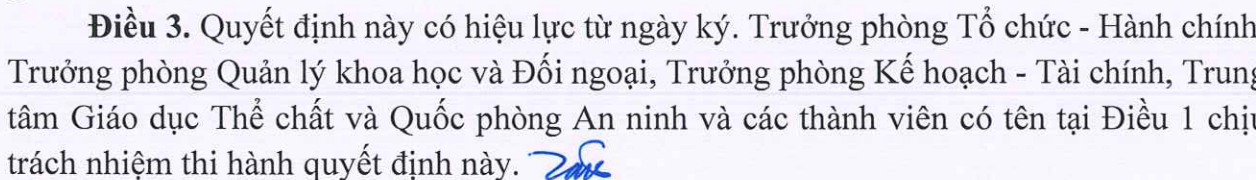 Điều 3. Quyết định này có hiệu lực từ ngày ký. Trưởng phòng Tổ chức - Hành chính
Trưởng phòng Quản lý khoa học và Đối ngoại, Trưởng phòng Kế hoạch - Tài chính, Trung
tâm Giáo dục Thể chất và Quốc phòng An ninh và các thành viên có tên tại Điều 1 chịu
trách nhiệm thi hành quyết định này.